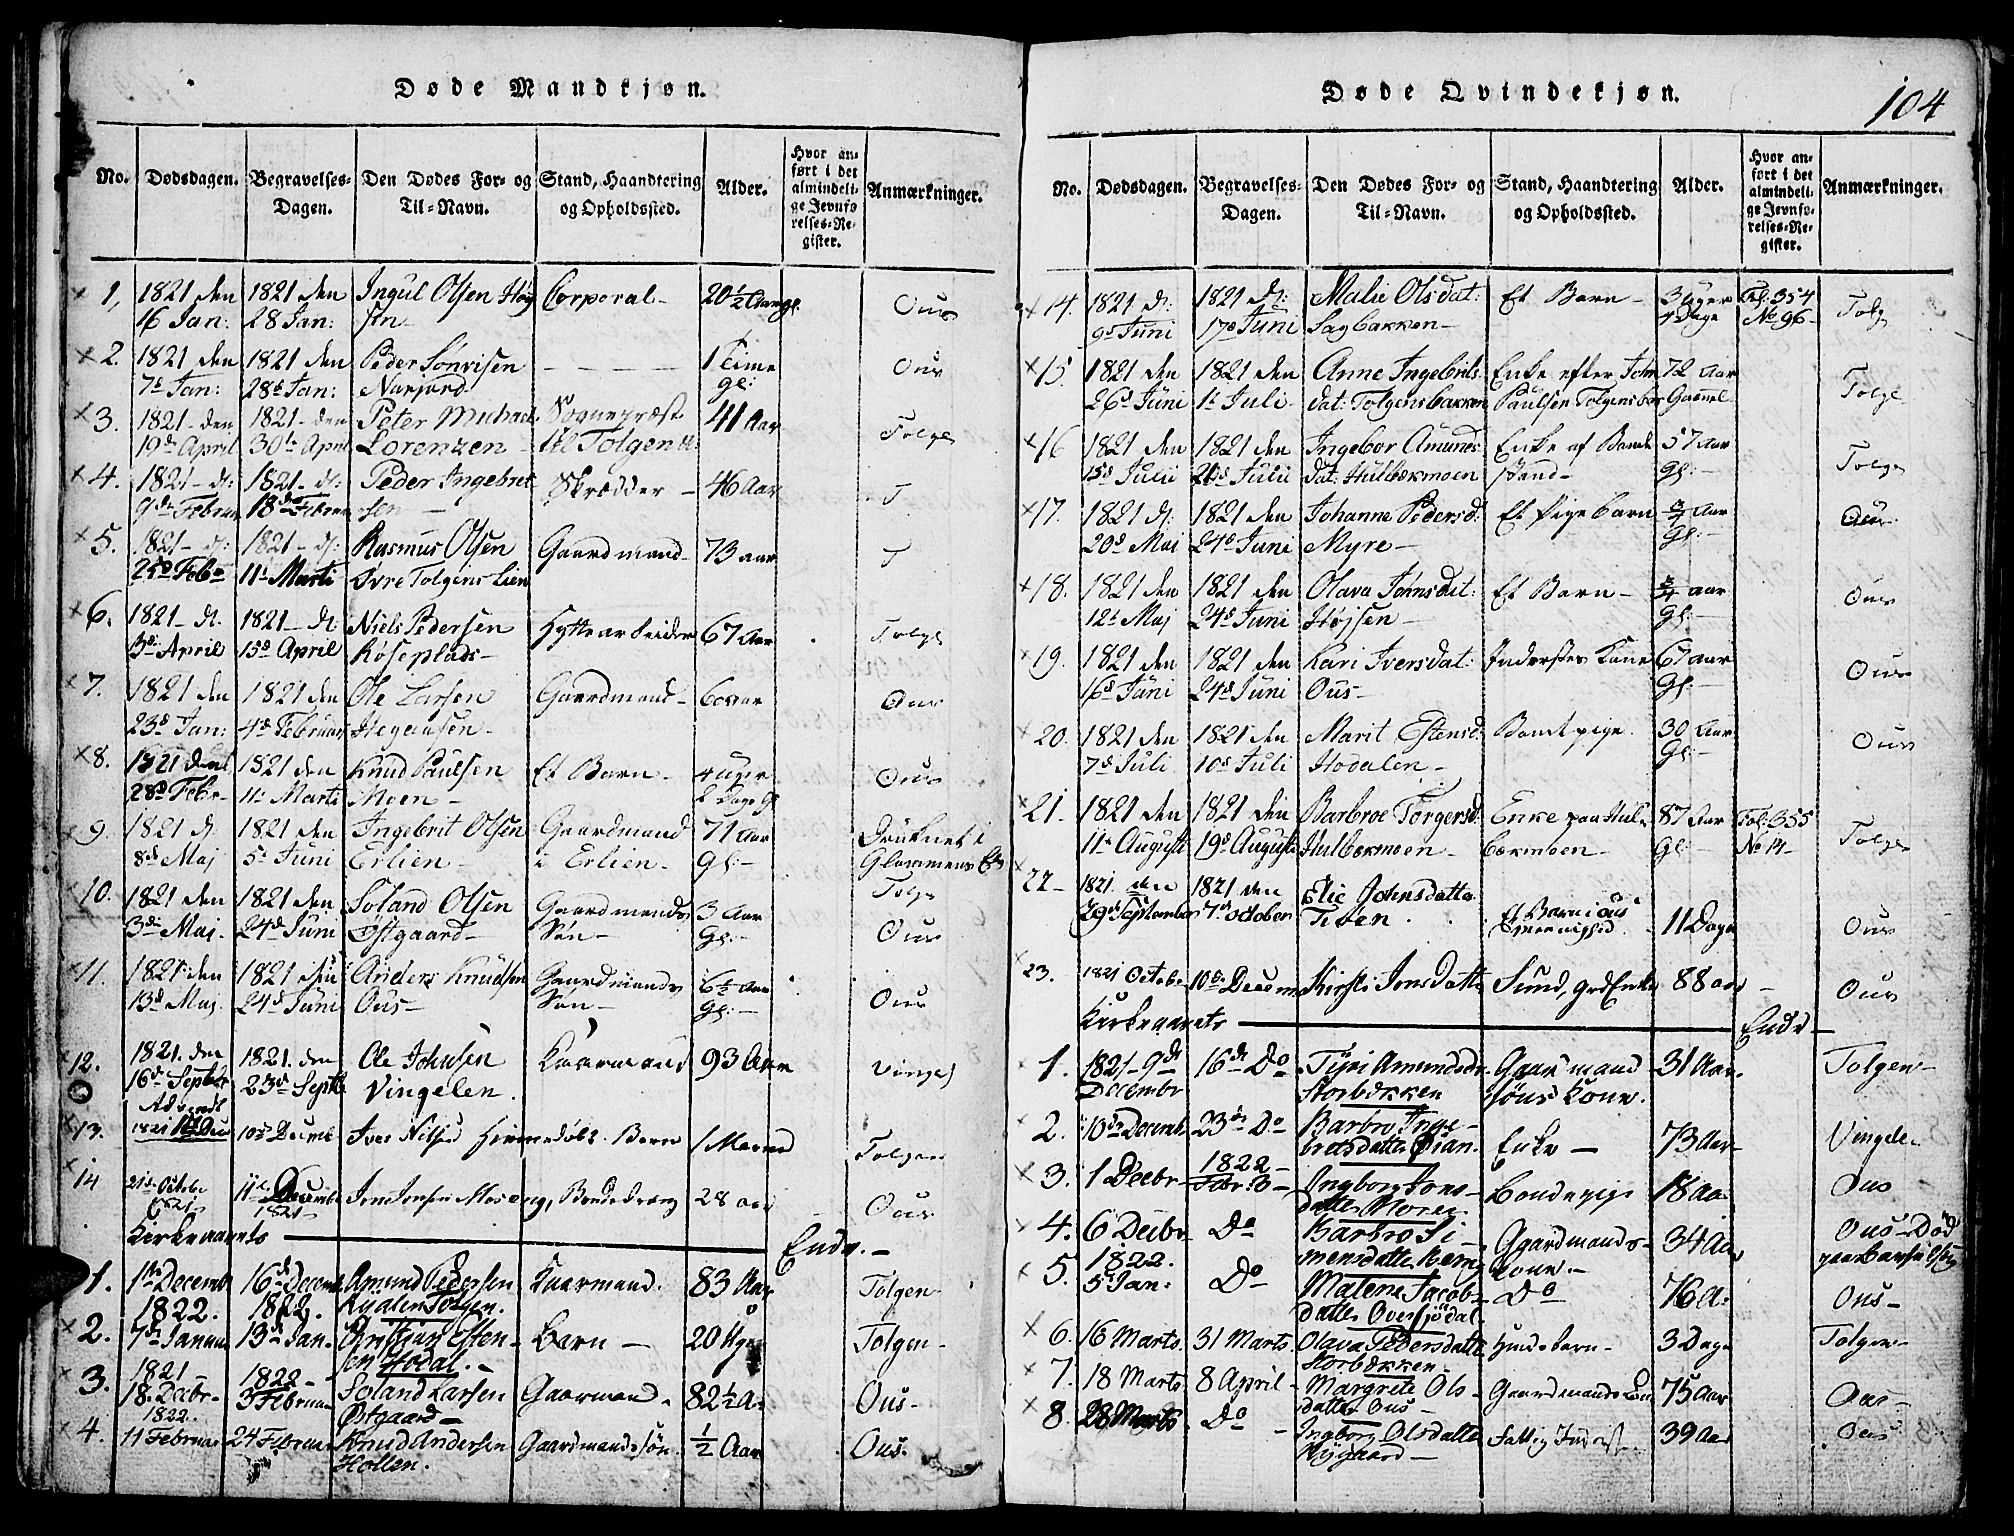 Døde Mandkjøn.
No. Dødsdagen. Begravelses-Dagen. Den Dødes For- og Til-Navn. Stand, Haandtering og Opholdssted. Alder. Hvor anført i det almindelige Jevnførelses-Register. Anmærkninger.
1, 1821 den 16 Jan: 1821 den 28 Jan: Ingul Olsen Corporal- 20 1/2 Ous
2. 1821 den 7de Jan: 1821 den 28de Jan: Peder 1 Time gl: Ous
3. 1821 den 19de April 1821 den 30te April Peter Michael Lorenzen Sognepræst til Tolgen 41 Aar Tolgen
4. 1821 d: 9de Februar 1821 d: 18de Februar Peder Ingebretsen Skrædder 46 Aar T
5. 1821 d: Feb 1821 d: 11te Marti Rasmus Olsen Øvre Tolgens Lien Gaardmand- 73 aar T
6. 1821 d: 3de April 1821 d: 15de April Niels Pedersen Røseplads- Hyttearbeider 67 Aar Tolge
7. 1821 den 23de Jan: 1821 den 4de Februar Ole Larsen Gaardmand- 60 aar Ous
8. 1821 den 28de Febr- 1821 den 11te Marti Knud Paulsen Moen- Et Barn- 4 Uger 2 Dage gl Ous
9. 1821 d: 8de Maj 1821 den 5te Juni Ingebrit Olsen Erlien- Gaardmand i Erlien- 71 Aar Gl:- Druknet i Glommens Tolge
10. 1821 den 3die Maj- 1821 den 24de Juni Soland Olsen Østgaard- Gaardmands Søn- 3 Aar Gl:- Ous
11. 1821 den 13de Maj. 1821 den 24de Juni Anders Knudsen Ous- Gaardmands Søn- 6 1/2 Aar Gl:- Ous
12. 1821. den 16de Septbr 1821. den 23de Septbr Ole Johnsen Vingelen. Gaarmand 93 Aar Vingel
13. 1821 10de Decemb Iver Nilsen Barn 1 Maaned Tolgen
14 21de Octobr 1821 11te Decembr 1821 Jon Jonsen Moseng, Bondedreng 28 aar Ous
Kirkeaarets Ende.-
1. 1te Decemb 16de Decemb Amund Pedersen Tolgen. Gaarmand. 83 Aar Tolgen
2. 1822. 7de Januar 1822. 13de Jan. Christian Estensen Hodal.- Barn- 20 Uger Tolgen-
3. 1821 18. Decbr- 1822- 3 Februar Soland Larsen Østgaard- Gaarmand. 82 1/2 A: Ous-
4. 1822. 11 Februar 24 Februar Knud Andersen Hollen. Gaardmandssøn. 1/2 Aar Ous.
Døde Qvindekjøn.
104
No. Dødsdagen. Begravelses-Dagen. Den Dødes For- og Til-Navn. Stand, Haandtering og Opholdssted. Alder. Hvor anført i det almindelige Jevnførelses-Register. Anmærkninger.
14. 1821 d: 9de Juni 1821 d: 17de Juni Malie Olsdat: Sagbakken- Et Barn- 3 Uger 4 Dage Fol: 354 No 96- Tolg
15. 1821 den 26de Juni 1821 den 1te Juli- Anne Ingebritsdat: Tolgensbakken Enke efter John Paulsen 72 Aar Gammel Tolge
16 1821 den 15de Julii 1821 den Julii Ingebor Amundsdat: Hulbækmoen Enke af Bondestand- 57 Aar Gl:- Tolge
17. 1821 d: 20de Maj 1821 den 24de Juni Johanne Pedersd: Myre- Et Pigebarn 3/4 Aar Gl:- Ous
18. 1821 den 12te Maj 1821 den 24de Juni Olava Johnsdat: Højsen- Et Barn- 3/4 aar Gl:- Ous
19. 1821 den 16de Juni 1821 den 24de Juni Kari Iversdat: Ous- Inderstes Kone 61 aar Gl:- Ous
20. 1821 den 7de Juli 1821 den 10de Juli Marit Estensd: Hodalen- Bondepige. 30 Aar Gl:- Ous
21. 1821 den 11te Augusti 1821 den 19de Augusti Barbroe Torgersd: Hulbækmoen- Enke paa Hulbækmoen- 87 Aar Gl:- Fol: 355 No 14- Tolge
22- 1821 den 29de September 1821 den 7de october Elie Johnsdatter Et Barn i Ous menighed. 11 Dage Ous
23. 1821 October 10de Decem Kirsti Jonsdatter Enke 88 aar - Ous
Kirkeaarets Ende-
1. 1821- 9de Decembr 16de Do Amundsdr Storbækken Gaardmand Kone. 31 Aar. Tolgen-
2. 10de Decemb 23de Do Barbro Ingebretsdatter Øian. Enke- 73 Aar- Vingele-
3. 1 Decbr- 1822- Febr: 3- Ingborg Jonsdatter Bondepige 18 Aa: Ous
4. 6 Decbr- Do Barbro Simensdatter Gaardmandskone.- 34 Aar Ous- Død paa
5. 1822. 5te Jan: Do Malene Jacobsdatter Oversjödal. Do 76 A: Ous-
6. 16 Marts. 31 Marts. Olava Pedersdatter Storbækken- 3 Dage Tolgen-
7. 18 Marts 8 April- Margrete Olsdatter Ous- Gaardmands 75 Aar Ous-
8. 28 Marts. Do - Ingborg Olsdatter Nygaard- Fattig 39 Aar Ous